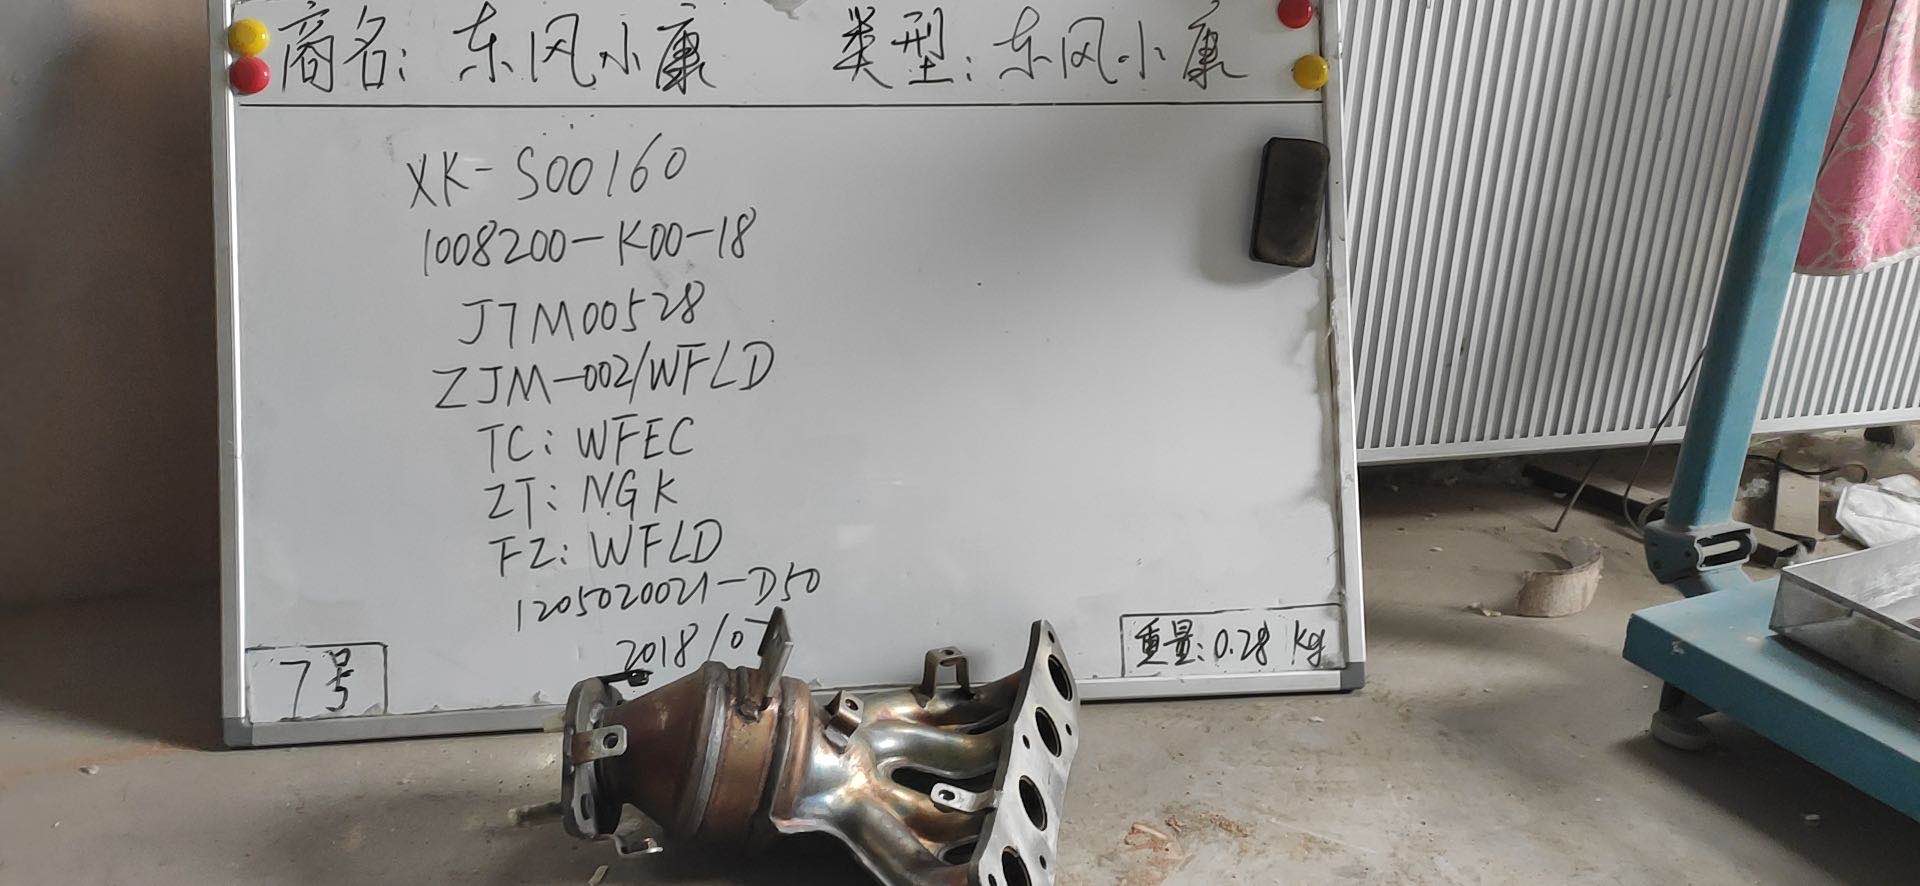 商名：东风小康 类型：东风小康
XK-S00160
1008200-K00-18
J7M00528
ZJM-002/WFLD
TC：WFEC
ZT：NGK
FZ：WFLD
1205020021-D50
2018/07
7号
重量：0.28 Kg